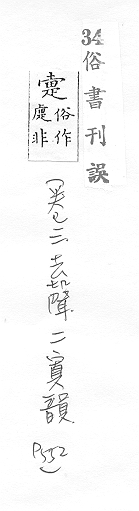 34
俗書刊誤
疐俗作
㢟非
(卷三去聲二寘韻
P552)